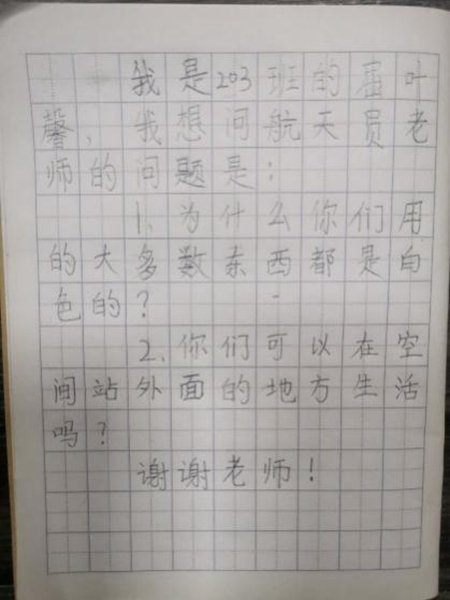 我是203班的屈叶
馨，我想问航天员老
师的问题是：
1、为什么你们用
的大多数东西都是白
色的？
2、你们可以在空
间站外面的地方生活
吗？
谢谢老师！